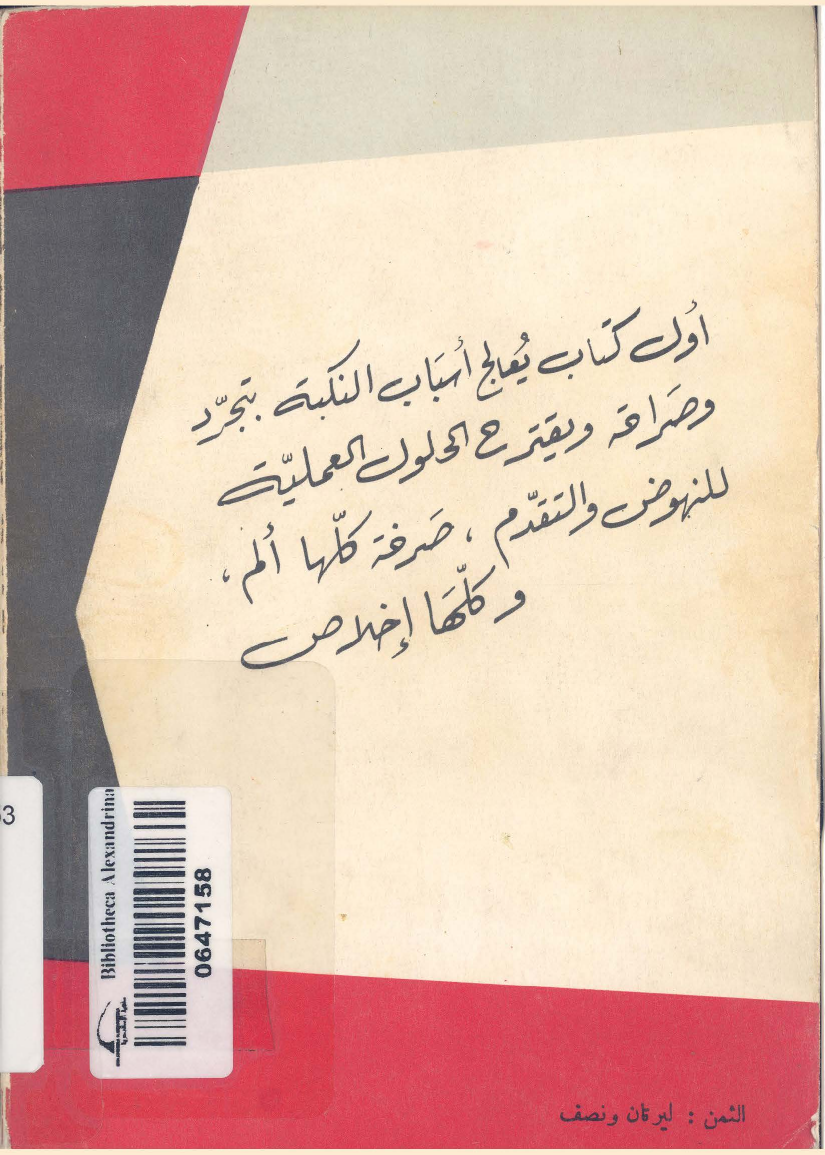 أول كتاب يُعالج أسبَاب النكبة بتجرّد
وصَراحة ويقترح الحلول العمليّة
للنهوض والتقدّم ، صَرخة كلّها ألم ،
و كلّهَا إخلاص
53
Bibliotheca Alexandrina
0647158
الثمن : ليرتان ونصف